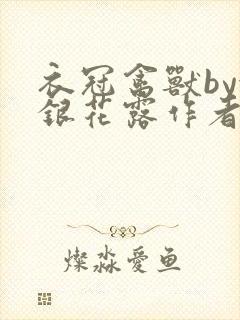 衣冠禽獸by
銀花露作者
燦淼愛鱼